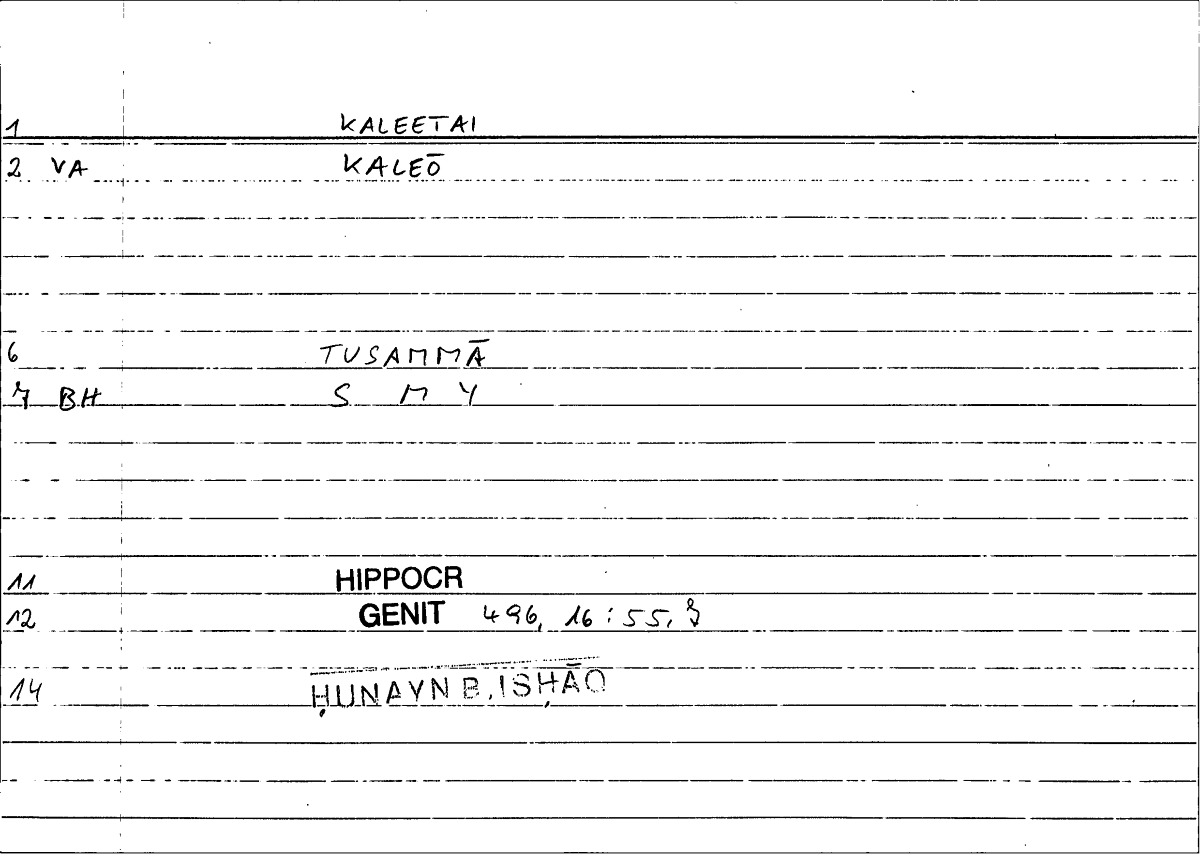 1 KALEETAI
2 VA KALEŌ
6 TUSAMMĀ
7 BH S M Y
11 HIPPOCR
12 GENIT 496, 16 : 55, 7
14 ḤUNAYN B. ISḤĀQ